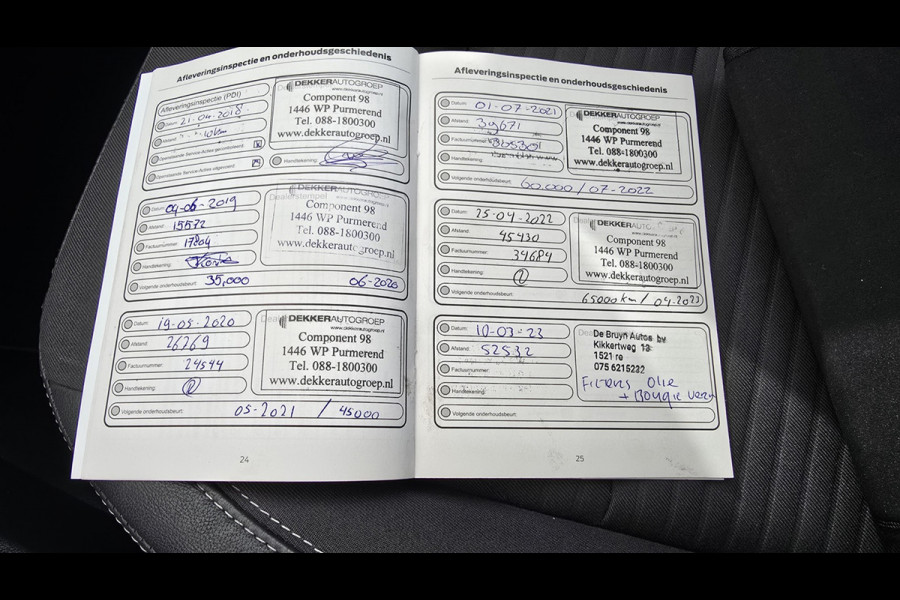 Afleveringsinspectie en onderhoudsgeschiedenis
Afleveringsinspectie (PDI)
Datum: 21-04-2018
10km
Openstaande Service-Acties gecontroleerd
Openstaande Service-Acties uitgevoerd
Handtekening:
DEKKERAUTOGROEP
www.dekkerautogroep.nl
Component 98
1446 WP Purmerend
Tel. 088-1800300
www.dekkerautogroep.nl
Datum: 04-06-2019
Afstand: 15572
Factuurnummer: 17804
Handtekening:
Volgende onderhoudsbeurt: 35,000 06-2020
Dealerstempel
DEKKERAUTOGROEP
Component 98
1446 WP Purmerend
Tel. 088-1800300
www.dekkerautogroep.nl
Datum: 19-05-2020
Afstand: 26269
Factuurnummer: 24544
Handtekening:
Volgende onderhoudsbeurt: 05-2021 / 45000
DEKKERAUTOGROEP
www.dekkerautogroep.nl
Component 98
1446 WP Purmerend
Tel. 088-1800300
www.dekkerautogroep.nl
24
Afleveringsinspectie en onderhoudsgeschiedenis
Datum: 01-07-2021
Afstand: 39671
Factuurnummer: 30530
Handtekening:
Volgende onderhoudsbeurt: 60.000 / 07-2022
DEKKERAUTOGROEP
Component 98
1446 WP Purmerend
Tel. 088-1800300
www.dekkerautogroep.nl
Datum: 25-04-2022
Afstand: 45430
Factuurnummer: 34684
Handtekening:
Volgende onderhoudsbeurt: 65000 km / 04-2023
DEKKERAUTO
Component 98
1446 WP Purmerend
Tel. 088-1800300
www.dekkerautogroep.nl
Datum: 10-03-23
Afstand: 52532
Factuurnummer:
Handtekening:
Volgende onderhoudsbeurt:
De Bruyn Autos bv
Kikkertweg 13
1521 re
075 6215232
Filters Olie
+ Bougie
25